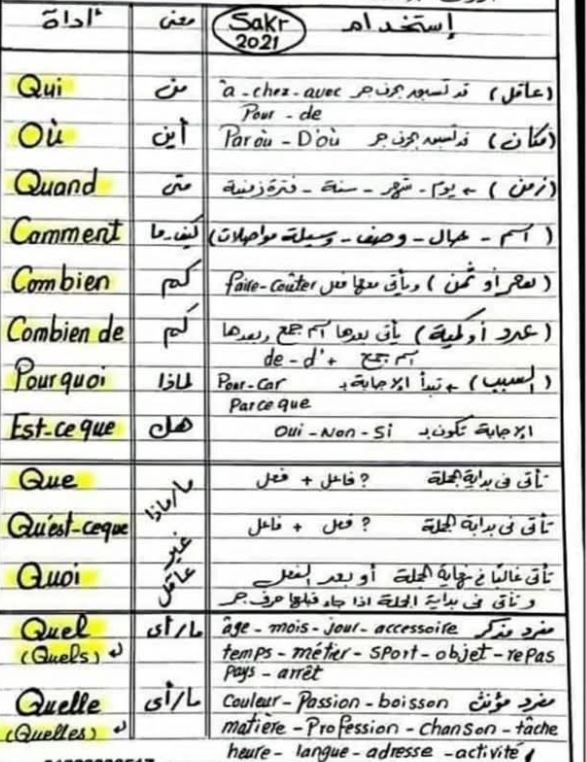 أداة معنى Sakr 2021 إستخدام
Qui من (عاقل) قد تسبق بحرف جر à - chez - avec
Pour - de
Où أين (مكان) قد تسبق بحرف جر Par où - D'où
Quand متى (زمن) ← يوم - شهر - سنة - فترة زمنية
Comment كيف - ما (اسم - حال - وصف - وسيلة مواصلات)
Combien كم (سعر أو ثمن) ويأتى معها فعل faire - coûter
Combien de كم (عدد أو كمية) يأتى بعدها اسم جمع وبعدها
de - d' + اسم جمع
Pourquoi لماذا (السبب) ← تبدأ الاجابة بـ Pour - Car
Parce que
Est-ce que هل الاجابة تكون بـ Oui - Non - Si
Que ما/ماذا تأتى فى بداية الجملة ? فاعل + فعل
Qu'est-ceque تأتى فى بداية الجملة ? فعل + فاعل
غير عاقل
Quoi تأتى غالبًا فى نهاية الجملة أو بعد الفعل
و تأتى فى بداية الجملة اذا جاء قبلها حرف جر
Quel ما/أى مفرد مذكر âge - mois - jour - accessoire
(Quels) temps - métier - sport - objet - repas
pays - arrêt
Quelle ما/أى مفرد مؤنث Couleur - Passion - boisson
(Quelles) matière - Profession - chanson - tâche
heure - langue - adresse - activité